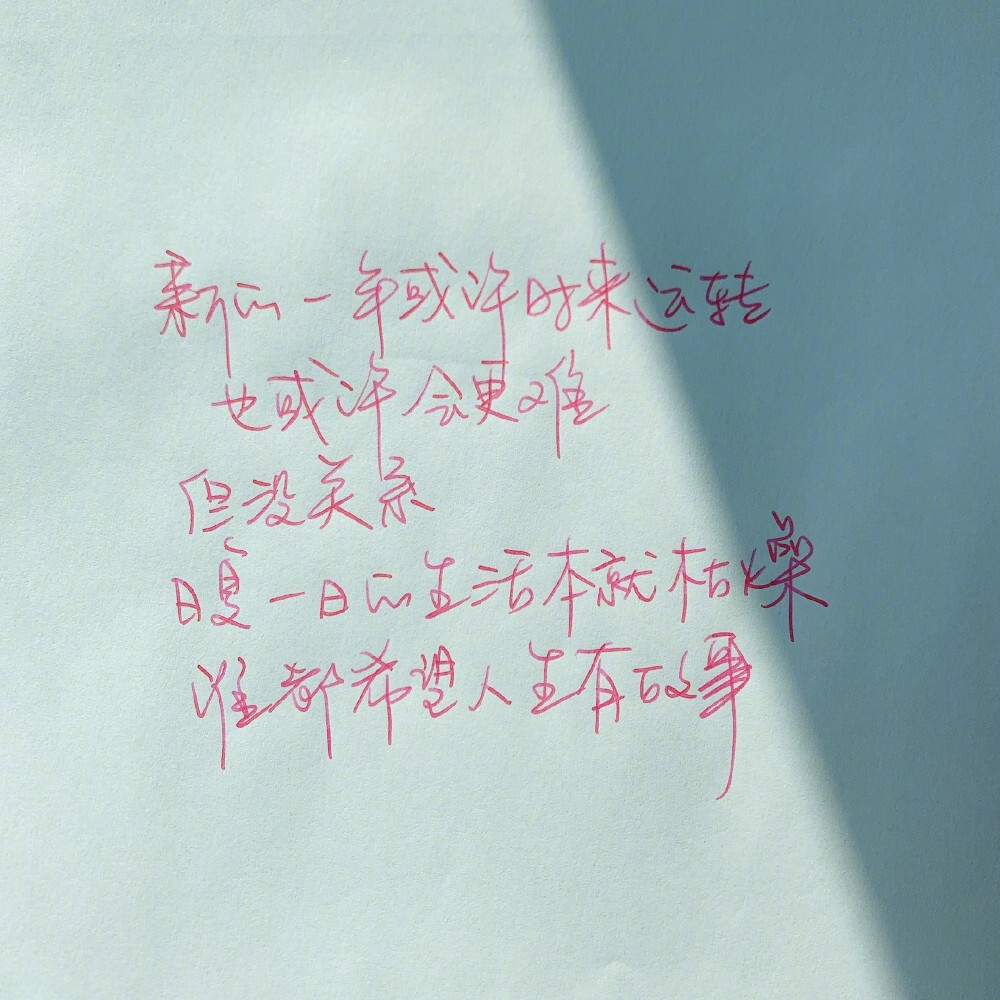 新的一年或许时来运转
也或许会更难
但没关系
日复一日的生活本就枯燥
谁都希望人生有故事